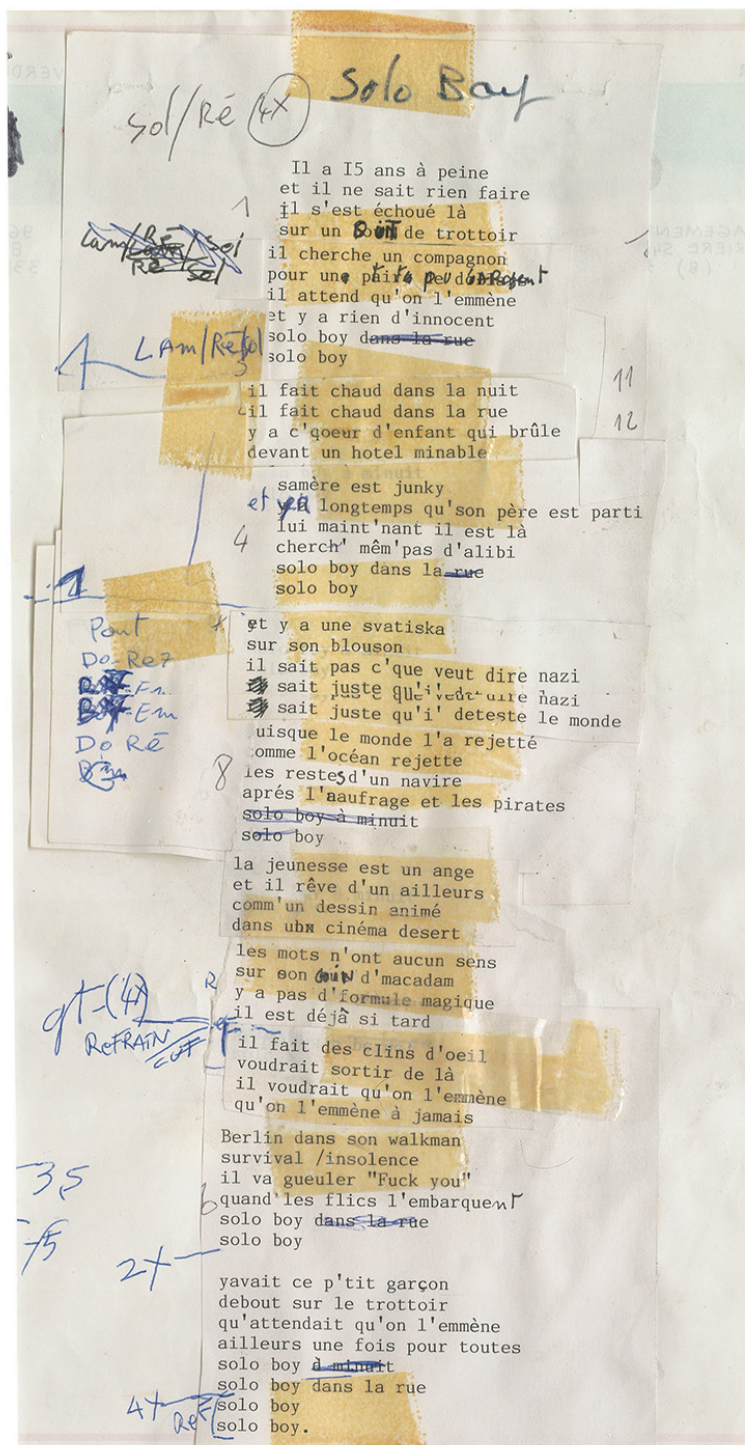 Solo Boy
Sol/Ré 4x
Il a I5 ans à peine
et il ne sait rien faire
1
il s'est échoué là
sur un BOUT de trottoir
il cherche un compagnon
pour une
il attend qu'on l'emmène
et y a rien d'innocent
solo boy dans la rue
LAm/Ré/Sol
solo boy
il fait chaud dans la nuit
11
il fait chaud dans la rue
12
y a c'qoeur d'enfant qui brûle
devant un hotel minable
samère est junky
et y a longtemps qu'son père est parti
lui maint'nant il est là
4
cherch' mêm'pas d'alibi
solo boy dans la rue
solo boy
et y a une svatiska
Pont
sur son blouson
Do-Ré7
il sait pas c'que veut dire nazi
sait juste qu'i' veut dire nazi
sait juste qu'i' deteste le monde
Do Ré
uisque le monde l'a rejetté
omme l'océan rejette
8
les restes d'un navire
aprés l'naufrage et les pirates
solo boy à minuit
solo boy
la jeunesse est un ange
et il rêve d'un ailleurs
comm'un dessin animé
dans un cinéma desert
les mots n'ont aucun sens
sur son COIN d'macadam
y a pas d'formule magique
gt-(4x)
il est déjà si tard
REFRAIN
il fait des clins d'oeil
voudrait sortir de là
il voudrait qu'on l'emmène
qu'on l'emmène à jamais
Berlin dans son walkman
survival /insolence
il va gueuler "Fuck you"
6
quand les flics l'embarquent
solo boy dans la rue
solo boy
2x
yavait ce p'tit garçon
debout sur le trottoir
qu'attendait qu'on l'emmène
ailleurs une fois pour toutes
solo boy à minuit
solo boy dans la rue
4x
solo boy
solo boy.